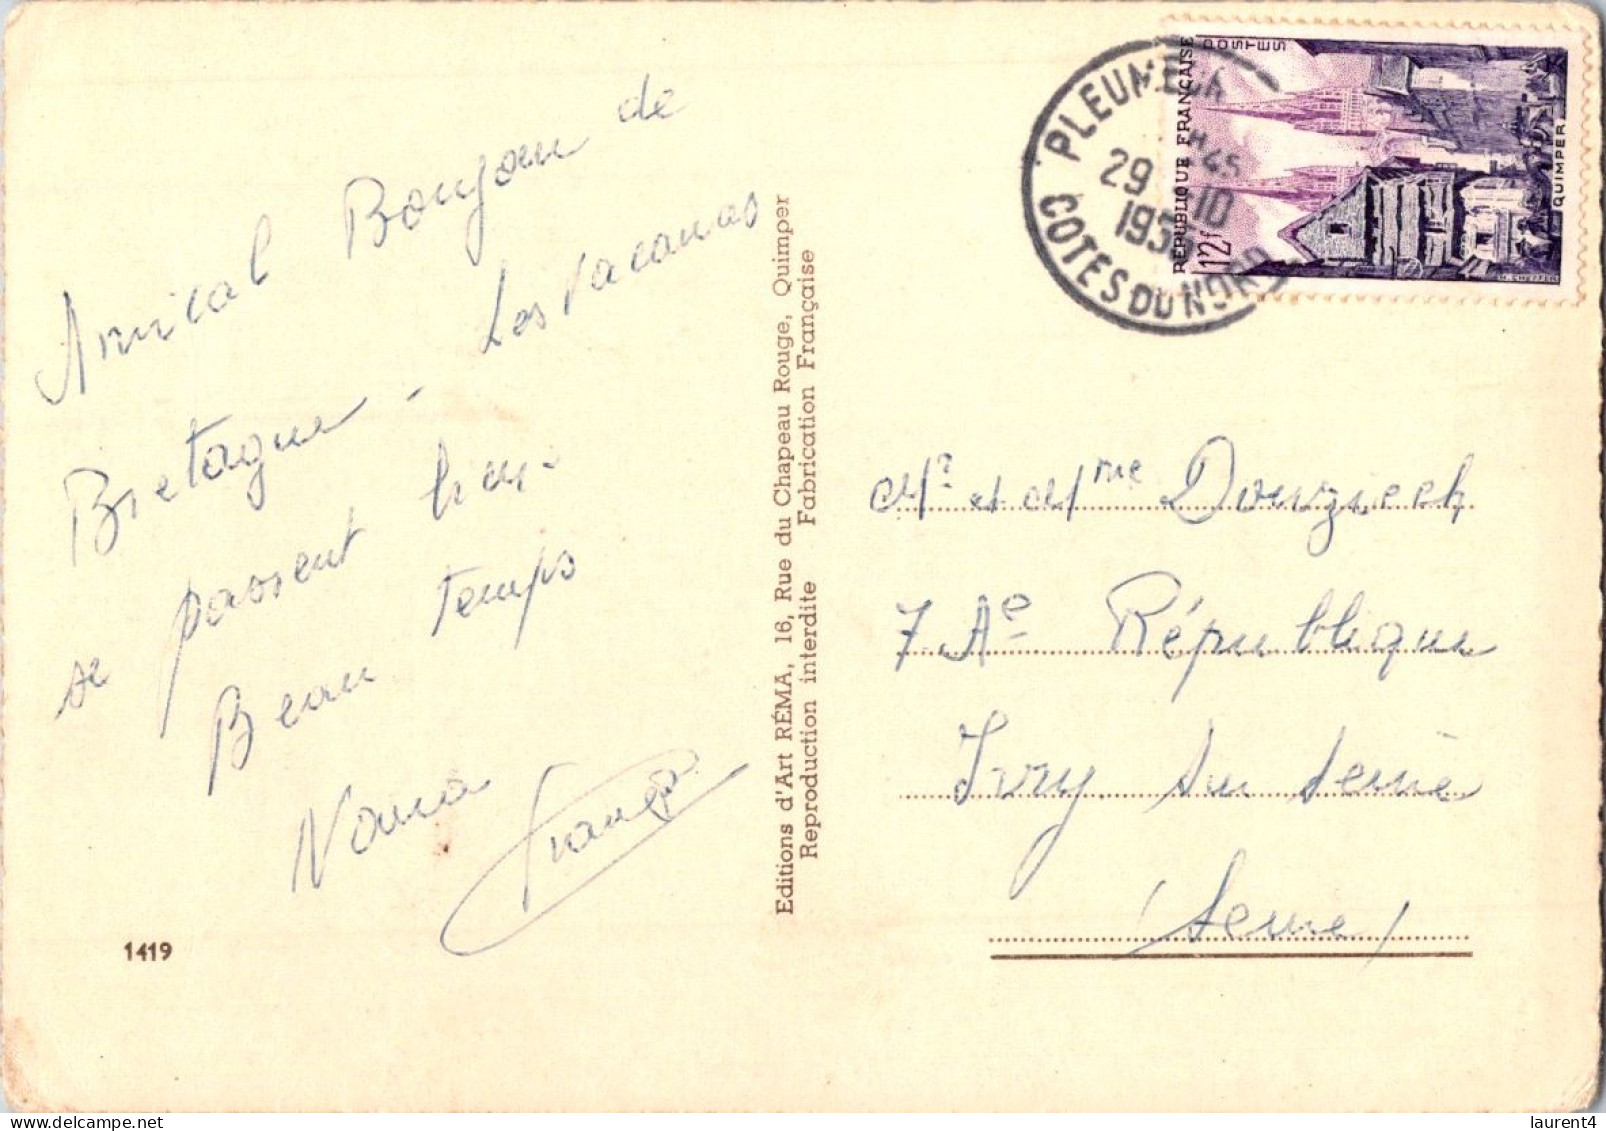 Amical Bonjour de
Bretagne - Les vacances
se passent bien.
Beau temps
Francis
1419
Editions d'Art RÉMA, 16, Rue du Chapeau Rouge, Quimper
Reproduction interdite Fabrication Française
PLEUMEUR
29 -10
H45
COTES DU NORD
RÉPUBLIQUE FRANÇAISE
POSTES
12f
QUIMPER
H. CHEFFER
Mr et Mme Douziech
7 Ae République
Ivry sur Seine
(Seine)
laurent4
delcampe.net